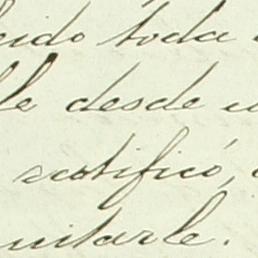 toda
le desde
ratificó,
uitarle.